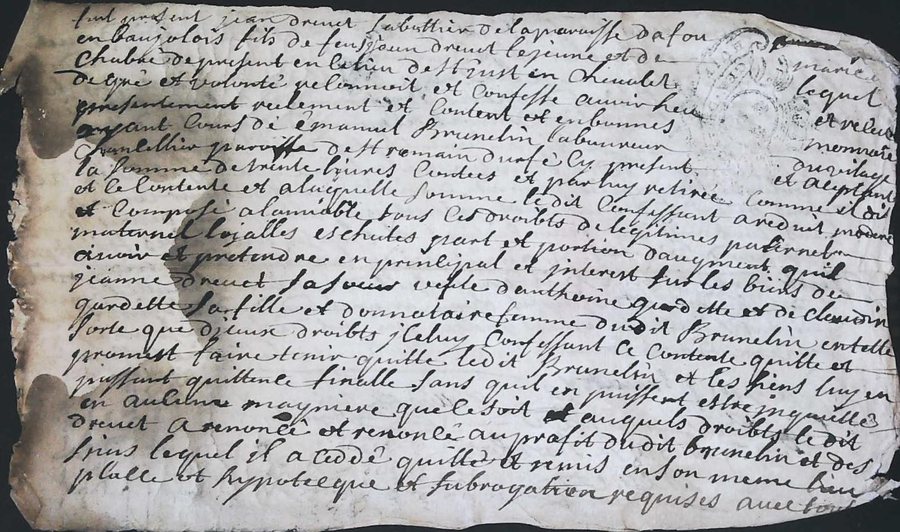 fut present jean drevet labottier de la paroisse dafou
en baujolois fils de feu jean drevet le jeune et de marie
Chabré de present en ce lieu de St just en chevalet lequel
de gré et volonté reconnoit et Confesse avoir heu et receu
presentement reelement et Content et en bonnes monnoie
ayant Cours de émanuel Brunelin laboureur du village
paroisse de St romain durfé Cy present et aceptant
la somme de trente livres Contées et par luy retirée Comme il dit
et ce Contente et a laquelle somme ledit Confessant a reduit moderé
et Composé a lamiable tous ces droibts de legitimes paternel
maternel loyalles eschutes part et portion daugment quil
avoir et pretendre en prinsipal et interest sur les biens de
jeanne drevet sa soeur vefve danthoine gardette et de claudin
gardette sa fille et donnataire femme dudit Brunelin en telle
sorte que diceux droibts iceluy Confessant ce Contente quitte et
promest faire tenir quitte ledit Brunelin et les siens luy en
passant quittence finalle sans quil en puissent estre inquiettés
en aulcune magniere que ce soit auquels droibts le dit
drevet a renoncé et renonce au profit dudit brunelin et des
siens lequel il a ceddé quitté et remis en son meme lieu
place et hypoteque et subrogation requises avec tout